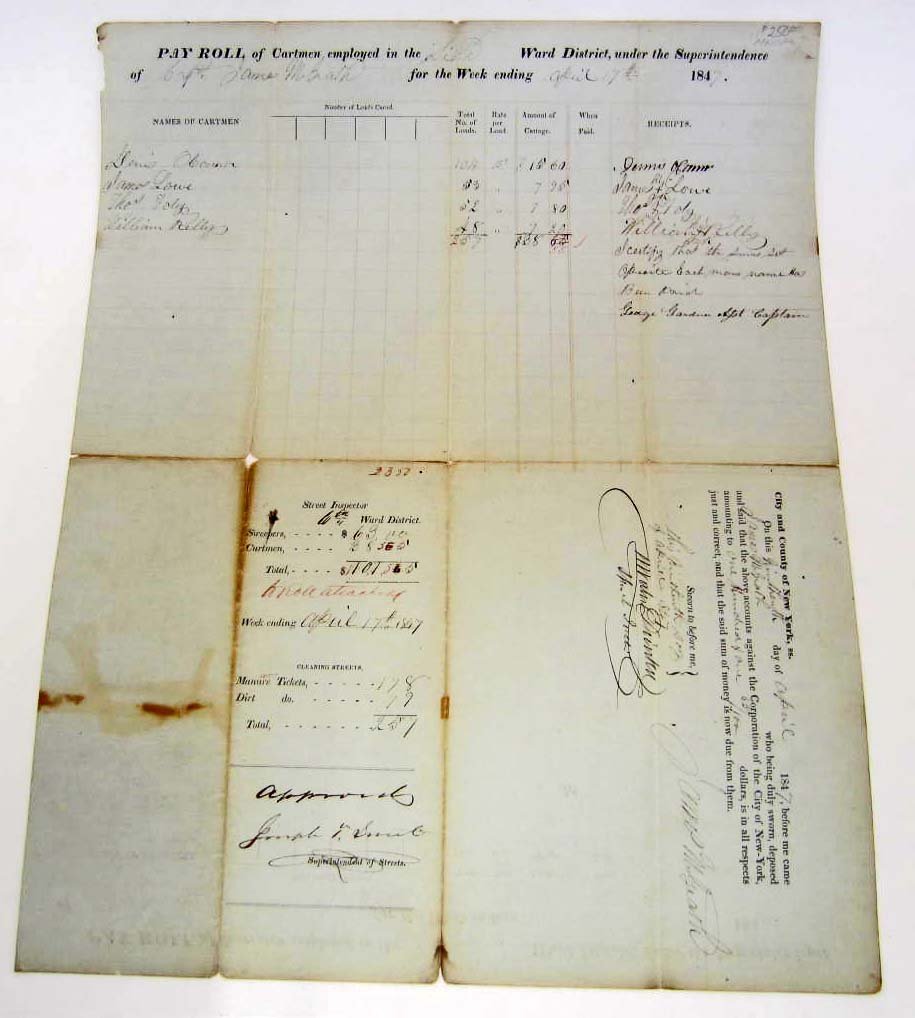 PAY ROLL, of Cartmen, employed in the Ward District, under the Superintendence
of Capt. James McGrath for the Week ending April 17th 1847.
NAMES OF CARTMEN Number of Loads Carted. Total No. of Loads. Rate per Load. Amount of Cartage. When Paid. RECEIPTS.
Denis O Connor 104 15 $ 15 60 Dennis OConnor
James Lowe 53 " 7 95 James Lowe
Thos Foly 52 " 7 80 Thos Foly
William Kelly 48 " 7 20 William Kelly
257 $38 55
I certify that the sums set
Oposite Each mans name has
Been Paid
George Gardner Asst Captain
Street Inspector
6th Ward District.
Sweepers, - - - $ 63 00
Cartmen, - - - - 38 55
Total, - - - - $ 101 55
Week ending April 17th 1847
CLEANING STREETS,
Manure Tickets, - - - - - 178
Dirt do. - - - - - 79
Total, - - - - - 257
Approved
Superintendent of Streets.
City and County of New York, ss.
On this day of April 1847, before me came
James McGrath who being duly sworn, deposed
and said that the above accounts against the Corporation of the City of New-York,
amounting to One Hundred & one dollars, is in all respects
just and correct, and that the said sum of money is now due from them.
Sworn to before me,
James McGrath